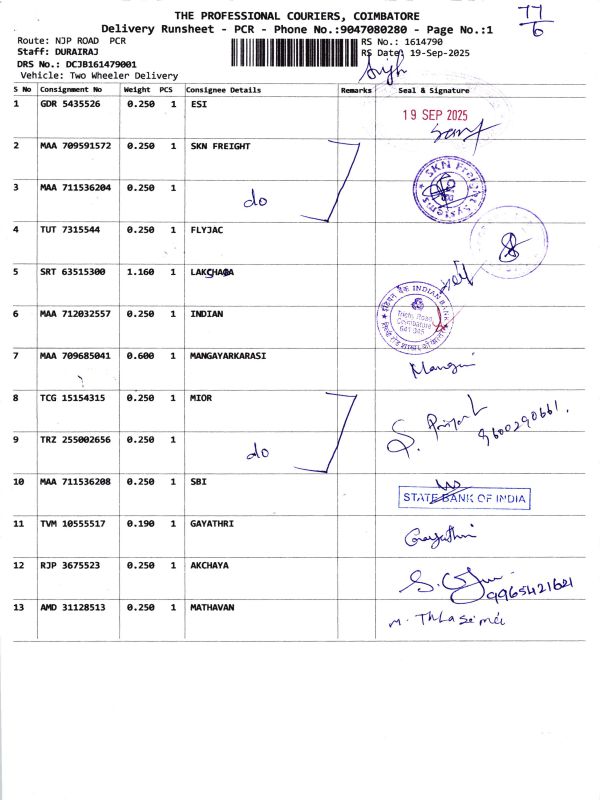 THE PROFESSIONAL COURIERS, COIMBATORE
77
6
Delivery Runsheet - PCR - Phone No.:9047080280 - Page No.:1
Route: NJP ROAD PCR
RS No.: 1614790
Staff: DURAIRAJ
RS Date: 19-Sep-2025
DRS No.: DCJB161479001
Vehicle: Two Wheeler Delivery
S No Consignment No Weight PCS Consignee Details Remarks Seal & Signature
1 GDR 5435526 0.250 1 ESI
19 SEP 2025
2 MAA 709591572 0.250 1 SKN FREIGHT
SKN Freight Systems
3 MAA 711536204 0.250 1 do
4 TUT 7315544 0.250 1 FLYJAC
5 SRT 63515300 1.160 1 LAKCHADA
6 MAA 712032557 0.250 1 INDIAN
INDIAN BANK
Trichy Road,
Coimbatore
641 045
7 MAA 709685041 0.600 1 MANGAYARKARASI
8 TCG 15154315 0.250 1 MIOR
9600290661.
9 TRZ 255002656 0.250 1 do
10 MAA 711536208 0.250 1 SBI
STATE BANK OF INDIA
11 TVM 10555517 0.190 1 GAYATHRI
Gayathri
12 RJP 3675523 0.250 1 AKCHAYA
9965421621
13 AMD 31128513 0.250 1 MATHAVAN